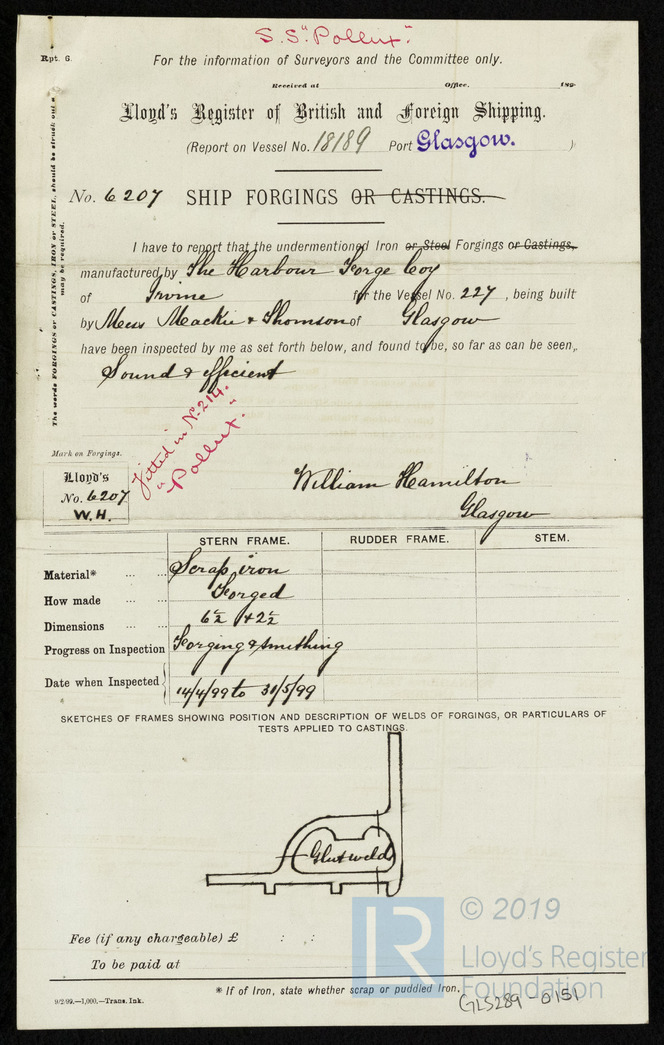 S.S. "Pollux".
Rpt. 6.
For the information of Surveyors and the Committee only.
Received at Office, 189-
Lloyd's Register of British and Foreign Shipping.
(Report on Vessel No. 18189 Port Glasgow. )
No. 6207 SHIP FORGINGS OR CASTINGS.
The words FORGINGS or CASTINGS, IRON or STEEL, should be struck out as
may be required.
I have to report that the undermentioned Iron or Steel Forgings or Castings,
manufactured by The Harbour Forge Coy
of Irvine for the Vessel No. 227, being built
by Mess Mackie & Thomson of Glasgow
have been inspected by me as set forth below, and found to be, so far as can be seen,
Sound & efficient
Fitted in No. 214.
"Pollux".
Mark on Forgings.
Lloyd's
No. 6207
W.H.
William Hamilton
Glasgow
STERN FRAME. RUDDER FRAME. STEM.
Material* ... ... Scrap iron
How made ... ... Forged
Dimensions ... ... 6½ × 2½
Progress on Inspection Forging & smithing
Date when Inspected 14/4/99 to 31/5/99
SKETCHES OF FRAMES SHOWING POSITION AND DESCRIPTION OF WELDS OF FORGINGS, OR PARTICULARS OF
TESTS APPLIED TO CASTINGS.
Glut welds
Fee (if any chargeable) £ : :
To be paid at
* If of Iron, state whether scrap or puddled Iron.
9/2/99.—1,000.—Trans. Ink.
GLS289-0151
LR
© 2019
Lloyd's Register
Foundation